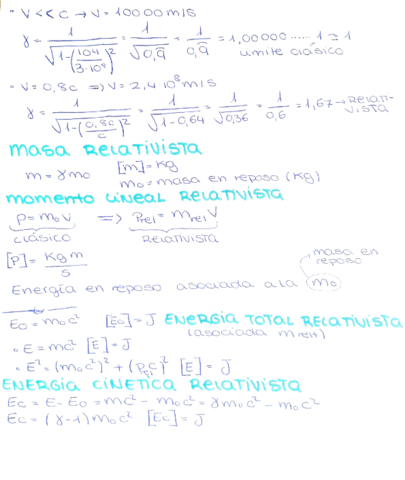 · V << c → V = 10000 m/s
γ = 1/√(1-(10⁴/3·10⁸)²) = 1/√0,9̂ = 1/0,9̂ = 1,00000 ..... 1 ≃ 1
límite clásico
· V = 0,8c ⇒ V = 2,4·10⁸ m/s
γ = 1/√(1-(0,8c/c)²) = 1/√(1-0,64) = 1/√0,36 = 1/0,6 = 1,67 → Relati-
vista
MASA RELATIVISTA
m = γm₀ [m] = Kg
m₀ = masa en reposo (Kg)
MOMENTO LINEAL RELATIVISTA
p = m₀V ⇒ Prel = mrel V
CLÁSICO RELATIVISTA
[P] = Kg m/s
masa en
reposo
Energía en reposo asociada a la m₀
E₀ = m₀c² [E₀] = J ENERGIA TOTAL RELATIVISTA
(asociada mrel)
· E = mc² [E] = J
· E² = (m₀c²)² + (Prel c)² [E] = J
ENERGIA CINETICA RELATIVISTA
Ec = E - E₀ = mc² - m₀c² = γm₀c² - m₀c²
Ec = (γ-1) m₀c² [Ec] = J